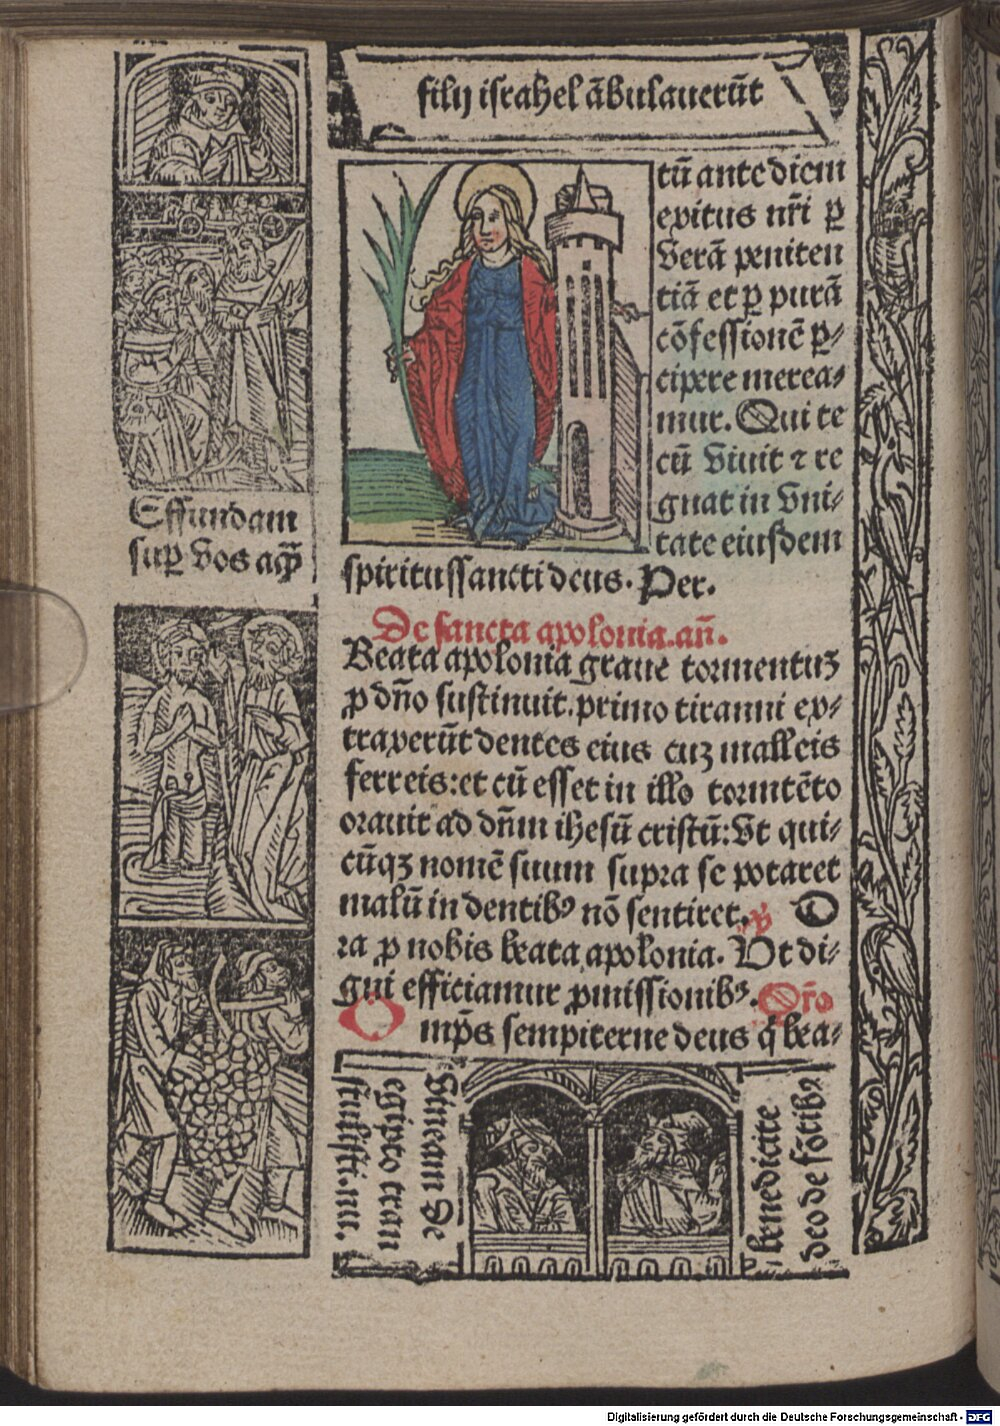 filij israhel ābulauerūt
tū ante diem
exitus nr̄i ꝑ
verā peniten
tiā et ꝑ purā
cōfessionē ꝑ-
cipere merea-
mur. Qui te
cū viuit ⁊ re
gnat in vni-
tate eiusdem
spiritussancti deus. Per.
De sancta apolonia. an̄.
Beata apolonia graue tormentuꝫ
ꝓ dn̄o sustinuit. primo tiranni ex-
traxerūt dentes eius cuꝫ malleis
ferreis: et cū esset in illo tormēto
orauit ad dn̄m ihesū cristū: vt qui-
cūqꝫ nomē suum supra se potaret
malū in dentibꝰ nō sentiret. ꝟ O
ra ꝓ nobis beata apolonia. Vt di-
gni efficiamur ꝓmissionibꝰ. Or̄o
O mp̄s sempiterne deus q̄ bea-
Effundam
suꝑ vos aq̄ꝫ
Vineam de
egipto tran
stulisti. nu.
benedicite
deo de fōtibꝰ
Digitalisierung gefördert durch die Deutsche Forschungsgemeinschaft - DFG